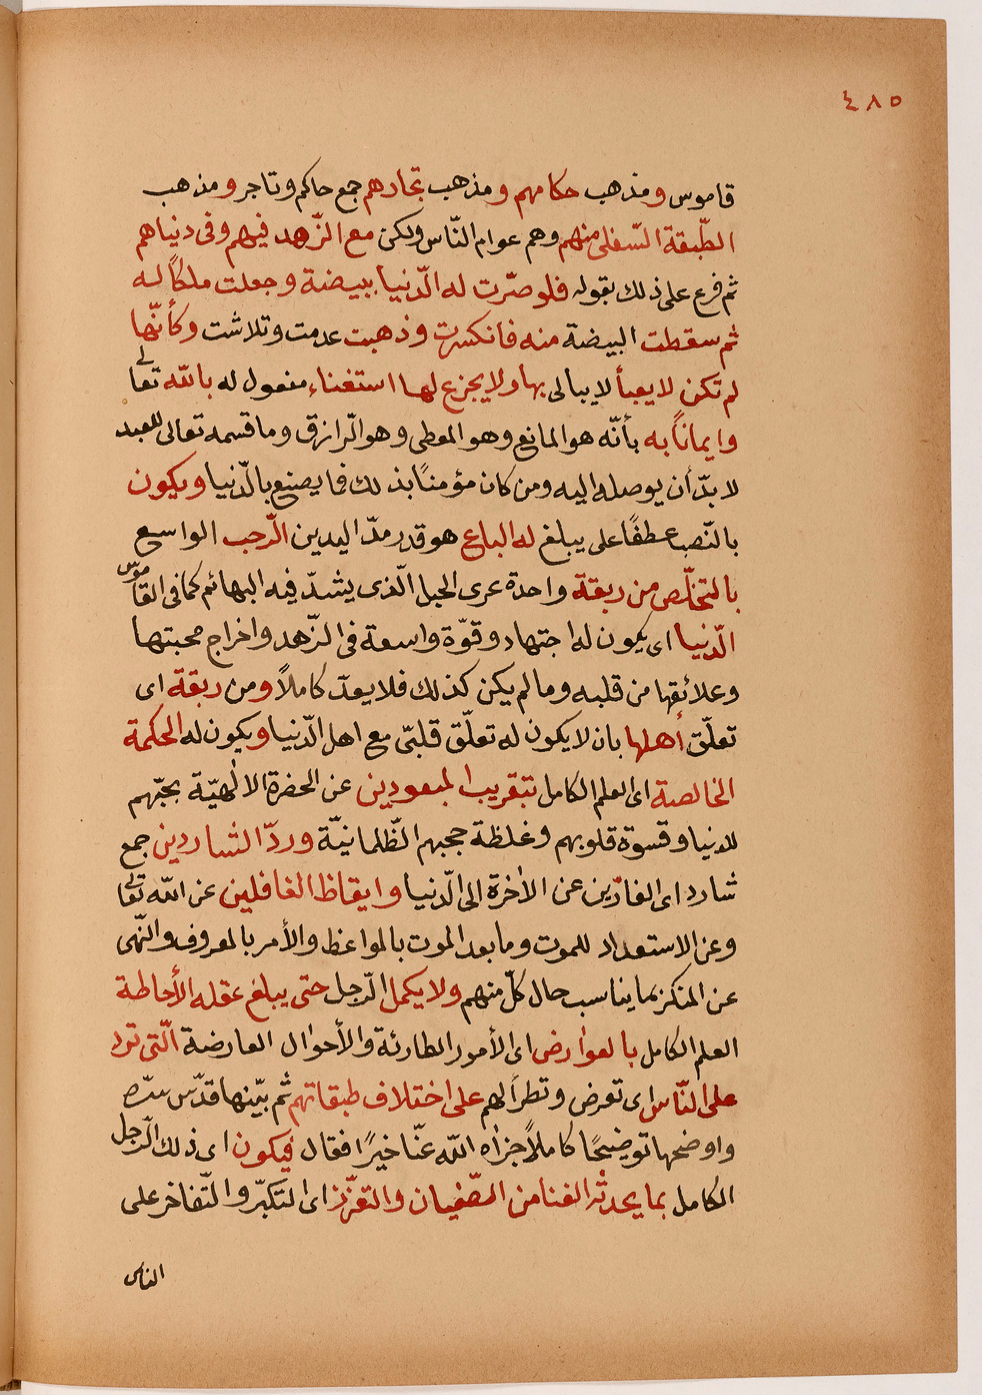 ٤٨٥
قاموس ومذهب حكامهم ومذهب تجارهم جمع حاكم وتاجر ومذهب
الطّبقة السّفلى منهم وهم عوام النّاس ولكن مع الزّهد فيهم وفى دنياهم
ثم فرع على ذلك بقوله فلو صرّت له الدّنيا ببيضة وجعلت ملكًا له
ثم سقطت البيضة منه فانكسرت وذهبت عدمت وتلاشت وكأنّها
لم تكن لا يعبأ لا يبالى بها ولا يجزع لها استغناء مفعول له بالله تعالى
وايمانًا به بأنّه هو المانع وهو المعطى وهو الرّازق وما قسمه تعالى للعبد
لا بدّ أن يوصله اليه ومن كان مؤمنًا بذلك فما يصنع بالدّنيا ويكون
بالنّصب عطفًا على يبلغ له الباع هو قدر مدّ اليدين الرّحب الواسع
بالتخلّص من ربقة واحدة عرى الحبل الّذى يشدّ فيه البهائم كما فى القاموس
الدّنيا اى يكون له اجتهاد وقوّة واسعة فى الزّهد واخراج محبتها
وعلائقها من قلبه وما لم يكن كذلك فلا يعدّ كاملًا ومن ربقة اى
تعلّق أهلها بان لا يكون له تعلّق قلبىّ مع اهل الدّنيا ويكون له الحكمة
الخالصة اى العلم الكامل بتقريب المبعودين عن الحضرة الالٰهيّة بحبّهم
للدنيا وقسوة قلوبهم وغلظة حجبهم الظّلمانيّة وردّ الشاردين جمع
شارد اى الفارّين عن الاٰخرة الى الدّنيا وايقاظ الغافلين عن الله تعالى
وعن الاستعداد للموت وما بعد الموت بالمواعظ والأمر بالمعروف والنّهى
عن المنكر بما يناسب حال كلّ منهم ولا يكمل الرّجل حتى يبلغ عقله الأحاطة
العلم الكامل بالعوارض اى الأمور الطارئة والأحوال العارضة الّتى ترد
على النّاس اى تعرض وتطرأ لهم على اختلاف طبقاتهم ثم بيّنها قدّس سرّه
واوضحها توضيحًا كاملًا جزاه الله عنّا خيرًا فقال فيكون اى ذلك الرّجل
الكامل بما يحدثه الغنا من الطّغيان والتعزّز اى التكبّر والتّفاخر على
الناس